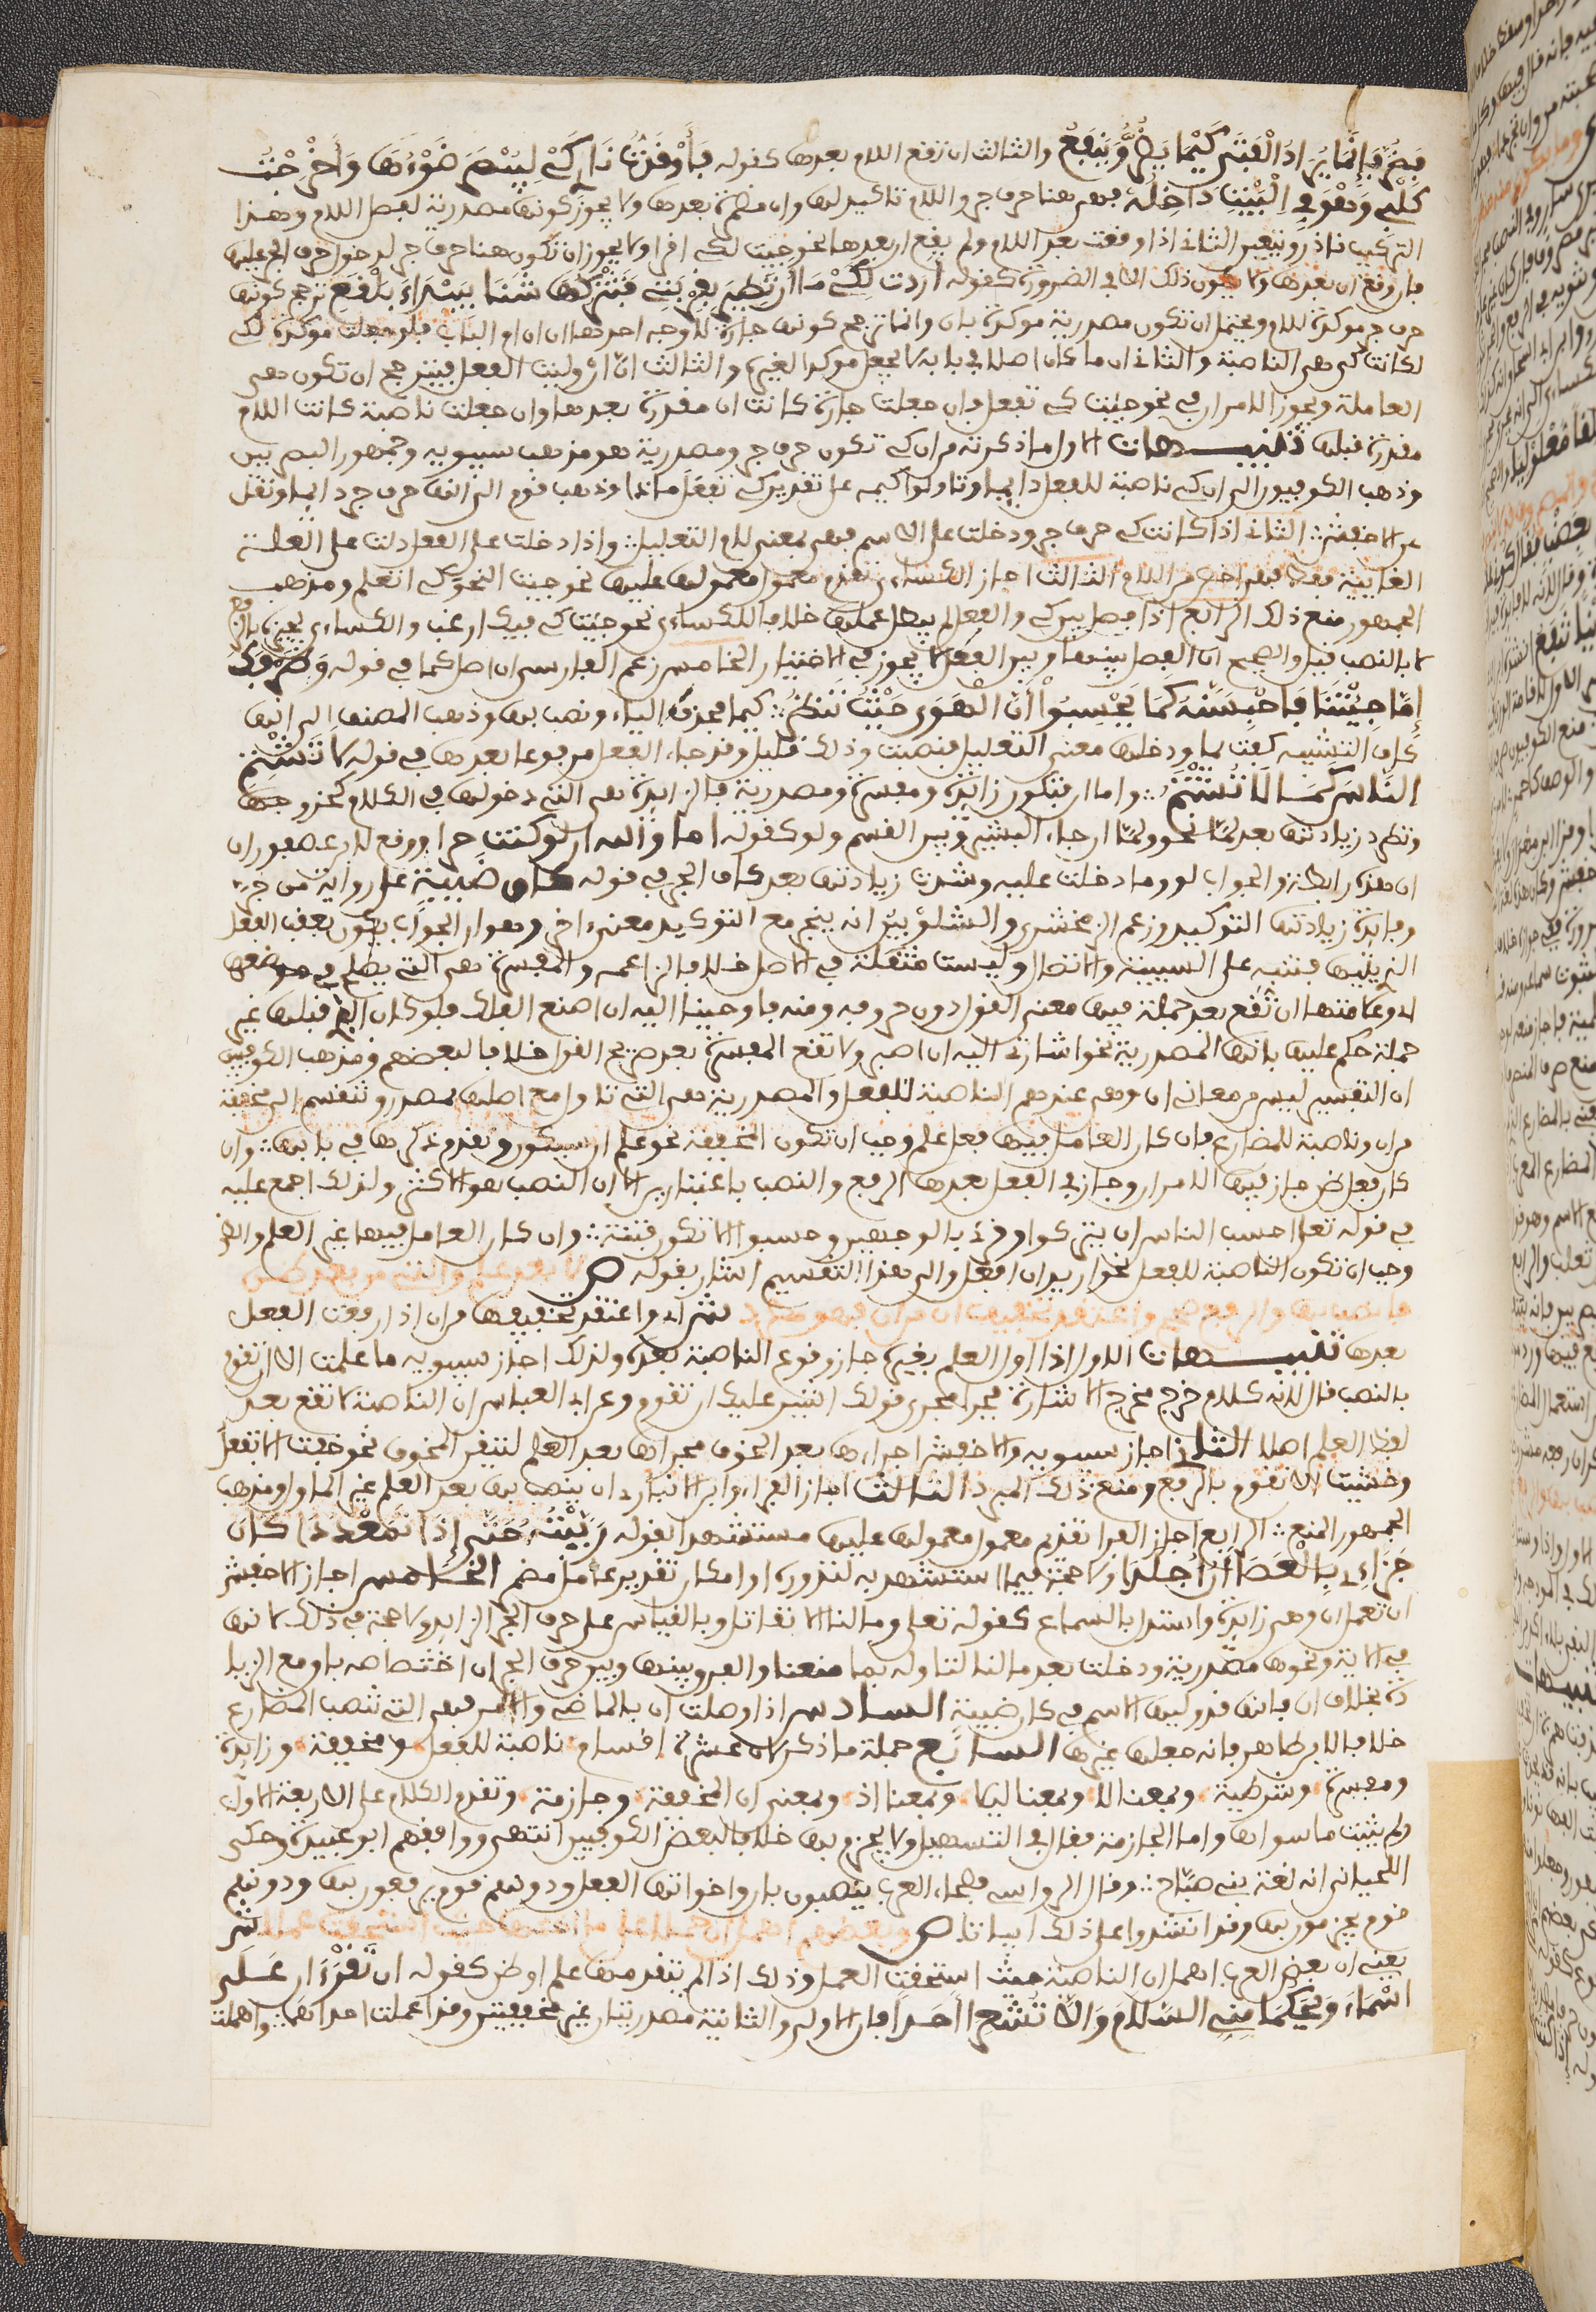 فضر فإنما يراد الفتى كيما يضر وينفع والثالث ان تقع اللام بعدها كقوله فأوقدت ناري كي ليبصر ضوءها وأخرجت
كلبي وهو في البيت داخله فهي هنا حرف جر واللام تاكيد لها وان مضمرة بعدها ولا يجوز كونها مصدرية لفصل اللام وهذا
التركيب نادر ويتعين الثاني اذا وقعت بعد اللام ولم يقع ان بعدها نحو جيت لكي اقرا ولا يجوز ان تكون هنا حرف جر لدخول حرف الجر عليها
فان وقع ان بعدها ولا يكون ذلك الا في الضرورة كقوله اردت لكي ما ان تطير بقربتي فتتركها شنا ببيداء بلقع ترجح كونها
حرف جر موكدة للام ويحتمل ان تكون مصدرية موكدة بان وانما ترجح كونها جارة لاوجه احدها ان ان ام الباب فلو جعلت موكدة لكي
لكانت كي هي الناصبة والثاني ان ما كان اصلا في بابه لا يجعل موكدا لغيره والثالث ان ان وليت الفعل فيترجح ان تكون هي
العاملة ويجوز الامران في نحو جيت كي تفعل فان جعلت جارة كانت ان مقدرة بعدها وان جعلت ناصبة كانت اللام
مقدرة قبلها تنبيهات الاول ما ذكرته من ان كي تكون حرف جر ومصدرية هو مذهب سيبويه وجمهور البصريين
وذهب الكوفيون الى ان كي ناصبة للفعل دايما وتاولوا كيمه على تقدير كي تفعل ماذا وذهب قوم الى انها حرف جر دايما ونقل
عن الاخفش الثاني اذا كانت كي حرف جر ودخلت على الاسم فهي بمعنى لام التعليل واذا دخلت على الفعل دلت على العلة
الغايية فقط فهي اخص من اللام الثالث اجاز الكساءي تقدم معمول معمولها عليها نحو جيت النحو كي اتعلم ومذهب
الجمهور منع ذلك الرابع اذا فصل بين كي والفعل لم يبطل عملها خلافا للكساءي نحو جيت كي فيك ارغب والكساءي يجيزه بالرفع
لا بالنصب قيل والصحيح ان الفصل بينها وبين الفعل لا يجوز في الاختيار الخامس زعم الفارسي ان اصل كما في قوله وطرفك
إما جئتنا فاحبسنه كما يحسبوا أن الهوى حيث تنظر كيما فحذف الياء ونصب بها وذهب المصنف الى انها
كاف التشبيه كفت بما ودخلها معنى التعليل فنصبت وذلك قليل وقد جاء الفعل مرفوعا بعدها في قوله لا تشتم
الناس كما لا تشتم واما ان فتكون زايدة ومفسرة ومصدرية فالزايدة هي التي دخولها في الكلام كخروجها
وتطرد زيادتها بعد لما نحو ولما ان جاء البشير وبين القسم ولو كقوله اما والله ان لو كنت حرا ووقع لابن عصفور ان
ان هذه رابطة والجواب لو وما دخلت عليه وشذت زيادتها بعد كاف الجر في قوله كان ظبية على رواية من جر
وفايدة زيادتها التوكيد وزعم الزمخشري والشلوبين انه ينجر مع التوكيد معنى اخر وهو ان الجواب يكون بعقب الفعل
الذي يليها فتنبه على السببية والاتصال وليست مثقلة في الاصل خلافا لزاعمه والمفسرة هي التي يصلح في موضعها
اي وعلامتها ان تقع بعد جملة فيها معنى القول دون حروفه ومنه فاوحينا اليه ان اصنع الفلك فلو كان الذي قبلها غير
جملة حكم عليها بانها المصدرية نحو اشارتي اليه ان اصبر ولا تقع المفسرة بعد صريح القول خلافا لبعضهم ومذهب الكوفيين
ان التفسير ليس من معاني ان وهي عندهم الناصبة للفعل والمصدرية هي التي تاول مع صلتها بمصدر وتنقسم الى مخففة
من ان وناصبة للمضارع فان كان العامل فيها فعل علم وجب ان تكون المخففة نحو علم ان سيكون وتقدم ذكرها في بابها وان
كان فعل ظن جاز فيها الامران وجاز في الفعل بعدها الرفع والنصب باعتبارين الا ان النصب هو الاكثر ولذلك اجمع عليه
في قوله تعلى احسب الناس ان يتركوا وقرئ بالوجهين وحسبوا الا تكون فتنة وان كان العامل فيها غير العلم والظن
وجب ان تكون الناصبة للفعل نحو اريد ان افعل والى هذا التقسيم اشار بقوله ص لا بعد علم والتي من بعد ظن
فانصب بها والرفع صحح واعتقد تخفيفها من ان فهو مطرد ش اي واعتقد تخفيفها من ان اذا رفعت الفعل
بعدها تنبيهات الاول اذا اول العلم بغيره جاز وقوع الناصبة بعده ولذلك اجاز سيبويه ما علمت الا ان تقوم
بالنصب قال لانه كلام خرج مخرج الاشارة فجرا مجرى قولك اشير عليك ان تقوم وعن ابي العباس ان الناصبة لا تقع بعد
لفظ العلم اصلا الثاني اجاز سيبويه والاخفش اجراءها بعد الخوف مجراها بعد العلم لتيقن المخوف نحو خفت الا تفعل
وخشيت الا تقوم بالرفع ومنع ذلك المبرد الثالث اجاز الفراء وابن الانباري ان ينصب بها بعد العلم غير الماول ومذهب
الجمهور المنع الرابع اجاز الفرا تقديم معمول معمولها عليها مستشهدا بقوله ربيته حتى إذا تمعددا كان
جزاءي بالعصا أن أجلدا ولا حجة فيما استشهد به لندوره او امكان تقدير عامل مضمر الخامس اجاز الاخفش
ان تعمل ان وهي زايدة واستدل بالسماع كقوله تعلى وما لنا الا نقاتل وبالقياس على حرف الجر الزايد ولا حجة في ذلك لانها
في الاية ونحوها مصدرية ودخلت بعد ما لنا لتاوله بما منعنا والفرق بينها وبين حرف الجر ان اختصاصه باق مع الزيا
دة بخلاف ان فانها قد وليها الاسم في كان ظبية السادس اذا وصلت ان بالماضي والامر فهي التي تنصب المضارع
خلافا لابن طاهر فانه جعلها غيرها السابع جملة ما ذكر لان عشرة اقسام ناصبة للفعل ومخففة وزايدة
ومفسرة وشرطية وبمعنا لا وبمعنا ليلا وبمعنا اذ وبمعنى ان المخففة وجازمة وتقدم الكلام على الاربعة الاول
ولم يثبت ما سواها واما الجازمة فقال في التسهيل ولا يجزم بها خلافا لبعض الكوفيين انتهى ووافقهم ابو عبيدة وحكى
اللحياني انه لغة بني صباح وقال الرواسي فصحاء العرب ينصبون بان واخواتها الفعل ودونهم قوم يرفعون بها ودونهم
قوم يجزمون بها وقد انشدوا على ذلك ابياتا ص وبعضهم اهمل ان حملا على ما اختها حيث استحقت عملا ش
يعني ان بعض العرب اهمل ان الناصبة حيث استحقت العمل وذلك اذا لم يتقدمها علم او ظن كقوله ان تقرءان على
اسماء ويحكما مني السلام وألا تشعرا أحدا فان الاولى والثانية مصدريتان غير مخففتين وقد اعملت احداهما واهملت